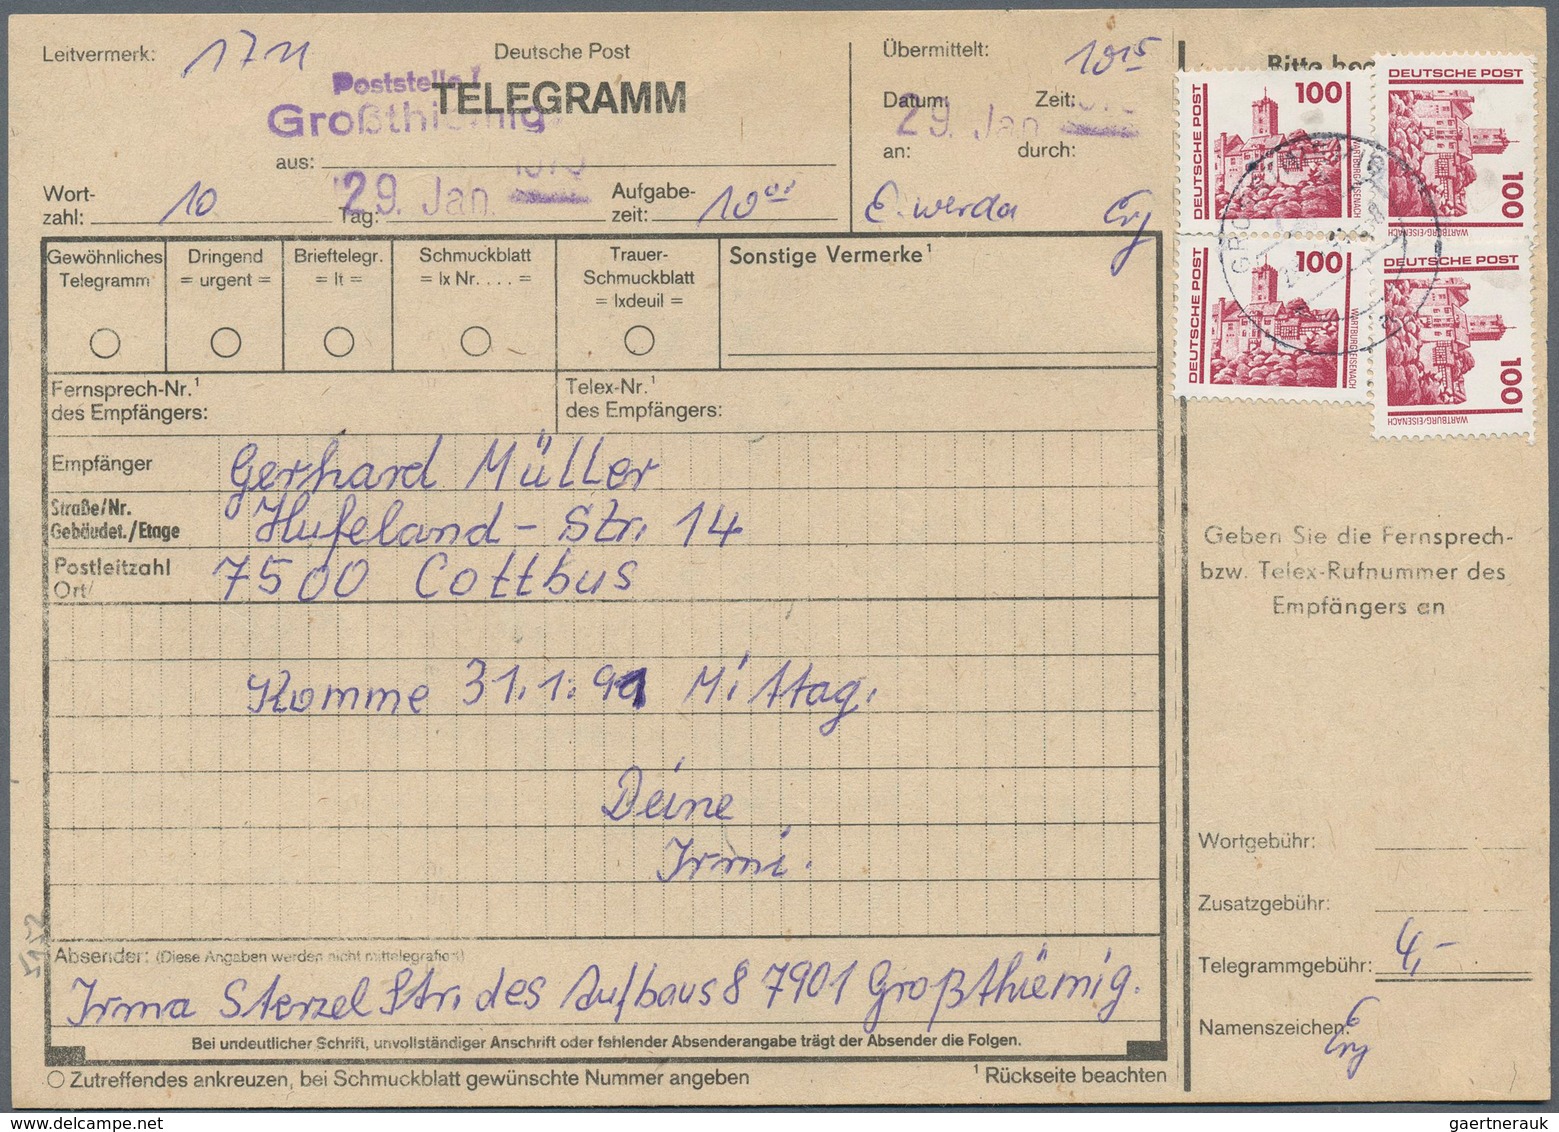 Leitvermerk: 1711
Deutsche Post
TELEGRAMM
Poststelle I
Großthiemig
aus:
Wort-
zahl: 10
Tag: 29. Jan.
Aufgabe-
zeit: 10⁰⁰
Übermittelt: 10¹⁵
Datum: Zeit:
29. Jan.
an: durch:
E. werda
Bitte
DEUTSCHE POST
100
WARTBURG/EISENACH
DEUTSCHE POST
100
WARTBURG/EISENACH
DEUTSCHE POST
100
WARTBURG/EISENACH
DEUTSCHE POST
100
WARTBURG/EISENACH
Gewöhnliches
Telegramm
Dringend
= urgent =
Brieftelegr.
= lt =
Schmuckblatt
= lx Nr. . . . =
Trauer-
Schmuckblatt
= lxdeuil =
Sonstige Vermerke¹
Fernsprech-Nr.¹
des Empfängers:
Telex-Nr.¹
des Empfängers:
Empfänger Gerhard Müller
Straße/Nr.
Gebäudet./Etage Hufeland-Str. 14
Postleitzahl
Ort/ 7500 Cottbus
Komme 31.1.91 Mittag.
Deine
Irmi.
Absender: (Diese Angaben werden nicht mittelegrafiert)
Irma Sterzel Str. des Aufbaus 8 7901 Großthiemig.
Bei undeutlicher Schrift, unvollständiger Anschrift oder fehlender Absenderangabe trägt der Absender die Folgen.
Zutreffendes ankreuzen, bei Schmuckblatt gewünschte Nummer angeben
¹ Rückseite beachten
Geben Sie die Fernsprech-
bzw. Telex-Rufnummer des
Empfängers an
Wortgebühr:
Zusatzgebühr:
Telegrammgebühr: 4,-
Namenszeichen:
gaertnerauk @ delcampe.net